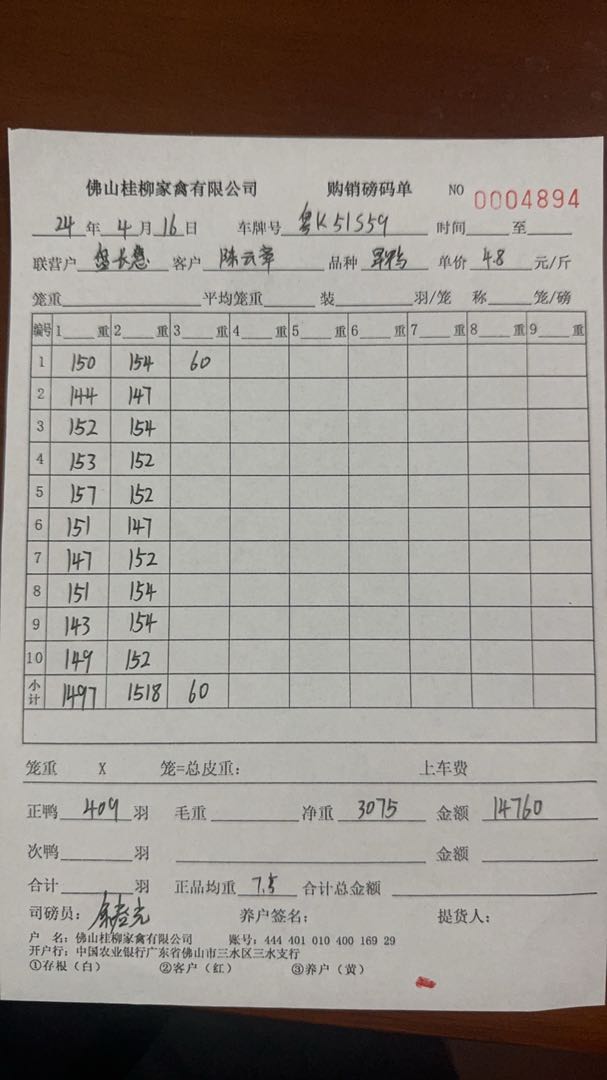 佛山桂柳家禽有限公司 购销磅码单 NO 0004894
24 年 4 月 16 日 车牌号 粤K51S59 时间 至
联营户 盘长 客户 陈云 品种 单价 4.8 元/斤
笼重 平均笼重 装 羽/笼 称 笼/磅
编号 1 重 2 重 3 重 4 重 5 重 6 重 7 重 8 重 9 重
1 150 154 60
2 144 147
3 152 154
4 153 152
5 157 152
6 151 147
7 147 152
8 151 154
9 143 154
10 149 152
小计 1497 1518 60
笼重 X 笼=总皮重: 上车费
正鸭 409 羽 毛重 净重 3075 金额 14760
次鸭 羽 金额
合计 羽 正品均重 7.5 合计总金额
司磅员: 养户签名: 提货人:
户 名: 佛山桂柳家禽有限公司 账号: 444 401 010 400 169 29
开户行: 中国农业银行广东省佛山市三水区三水支行
①存根(白) ②客户(红) ③养户(黄)